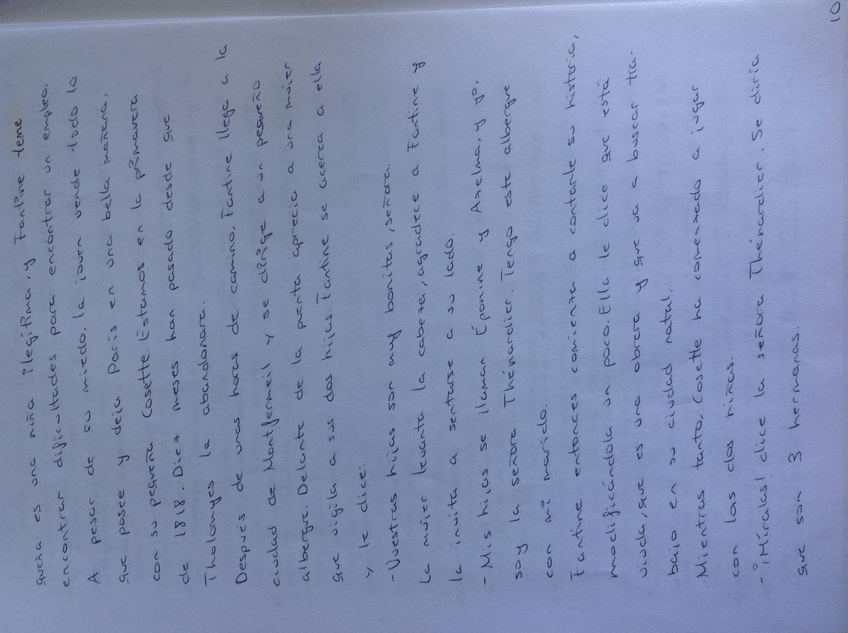 queña es una niña ilegítima, y Fantine teme
encontrar dificultades para encontrar un empleo.
A pesar de su miedo, la joven vende todo lo
que posee y deja París en una bella mañana,
con su pequeña Cosette. Estamos en la primavera
de 1818. Diez meses han pasado desde que
Tholomyes la abandonara.
Después de unas horas de camino, Fantine llega a la
ciudad de Montfermeil y se dirige a un pequeño
albergue. Delante de la puerta aprecia a una mujer
que vigila a sus dos hijas. Fantine se acerca a ella
y le dice:
- Vuestras hijas son muy bonitas, señora.
La mujer levanta la cabeza, agradece a Fantine y
la invita a sentarse a su lado.
- Mis hijas se llaman Éponine y Azelma, y yo,
soy la señora Thénardier. Tengo este albergue
con mi marido.
Fantine entonces comienza a contarle su historia,
modificándola un poco. Ella le dice que está
viuda, que es una obrera y que va a buscar tra-
bajo en su ciudad natal.
Mientras tanto, Cosette ha comenzado a jugar
con las dos niñas.
- ¡Míralas! dice la señora Thénardier. Se diría
que son 3 hermanas.
10